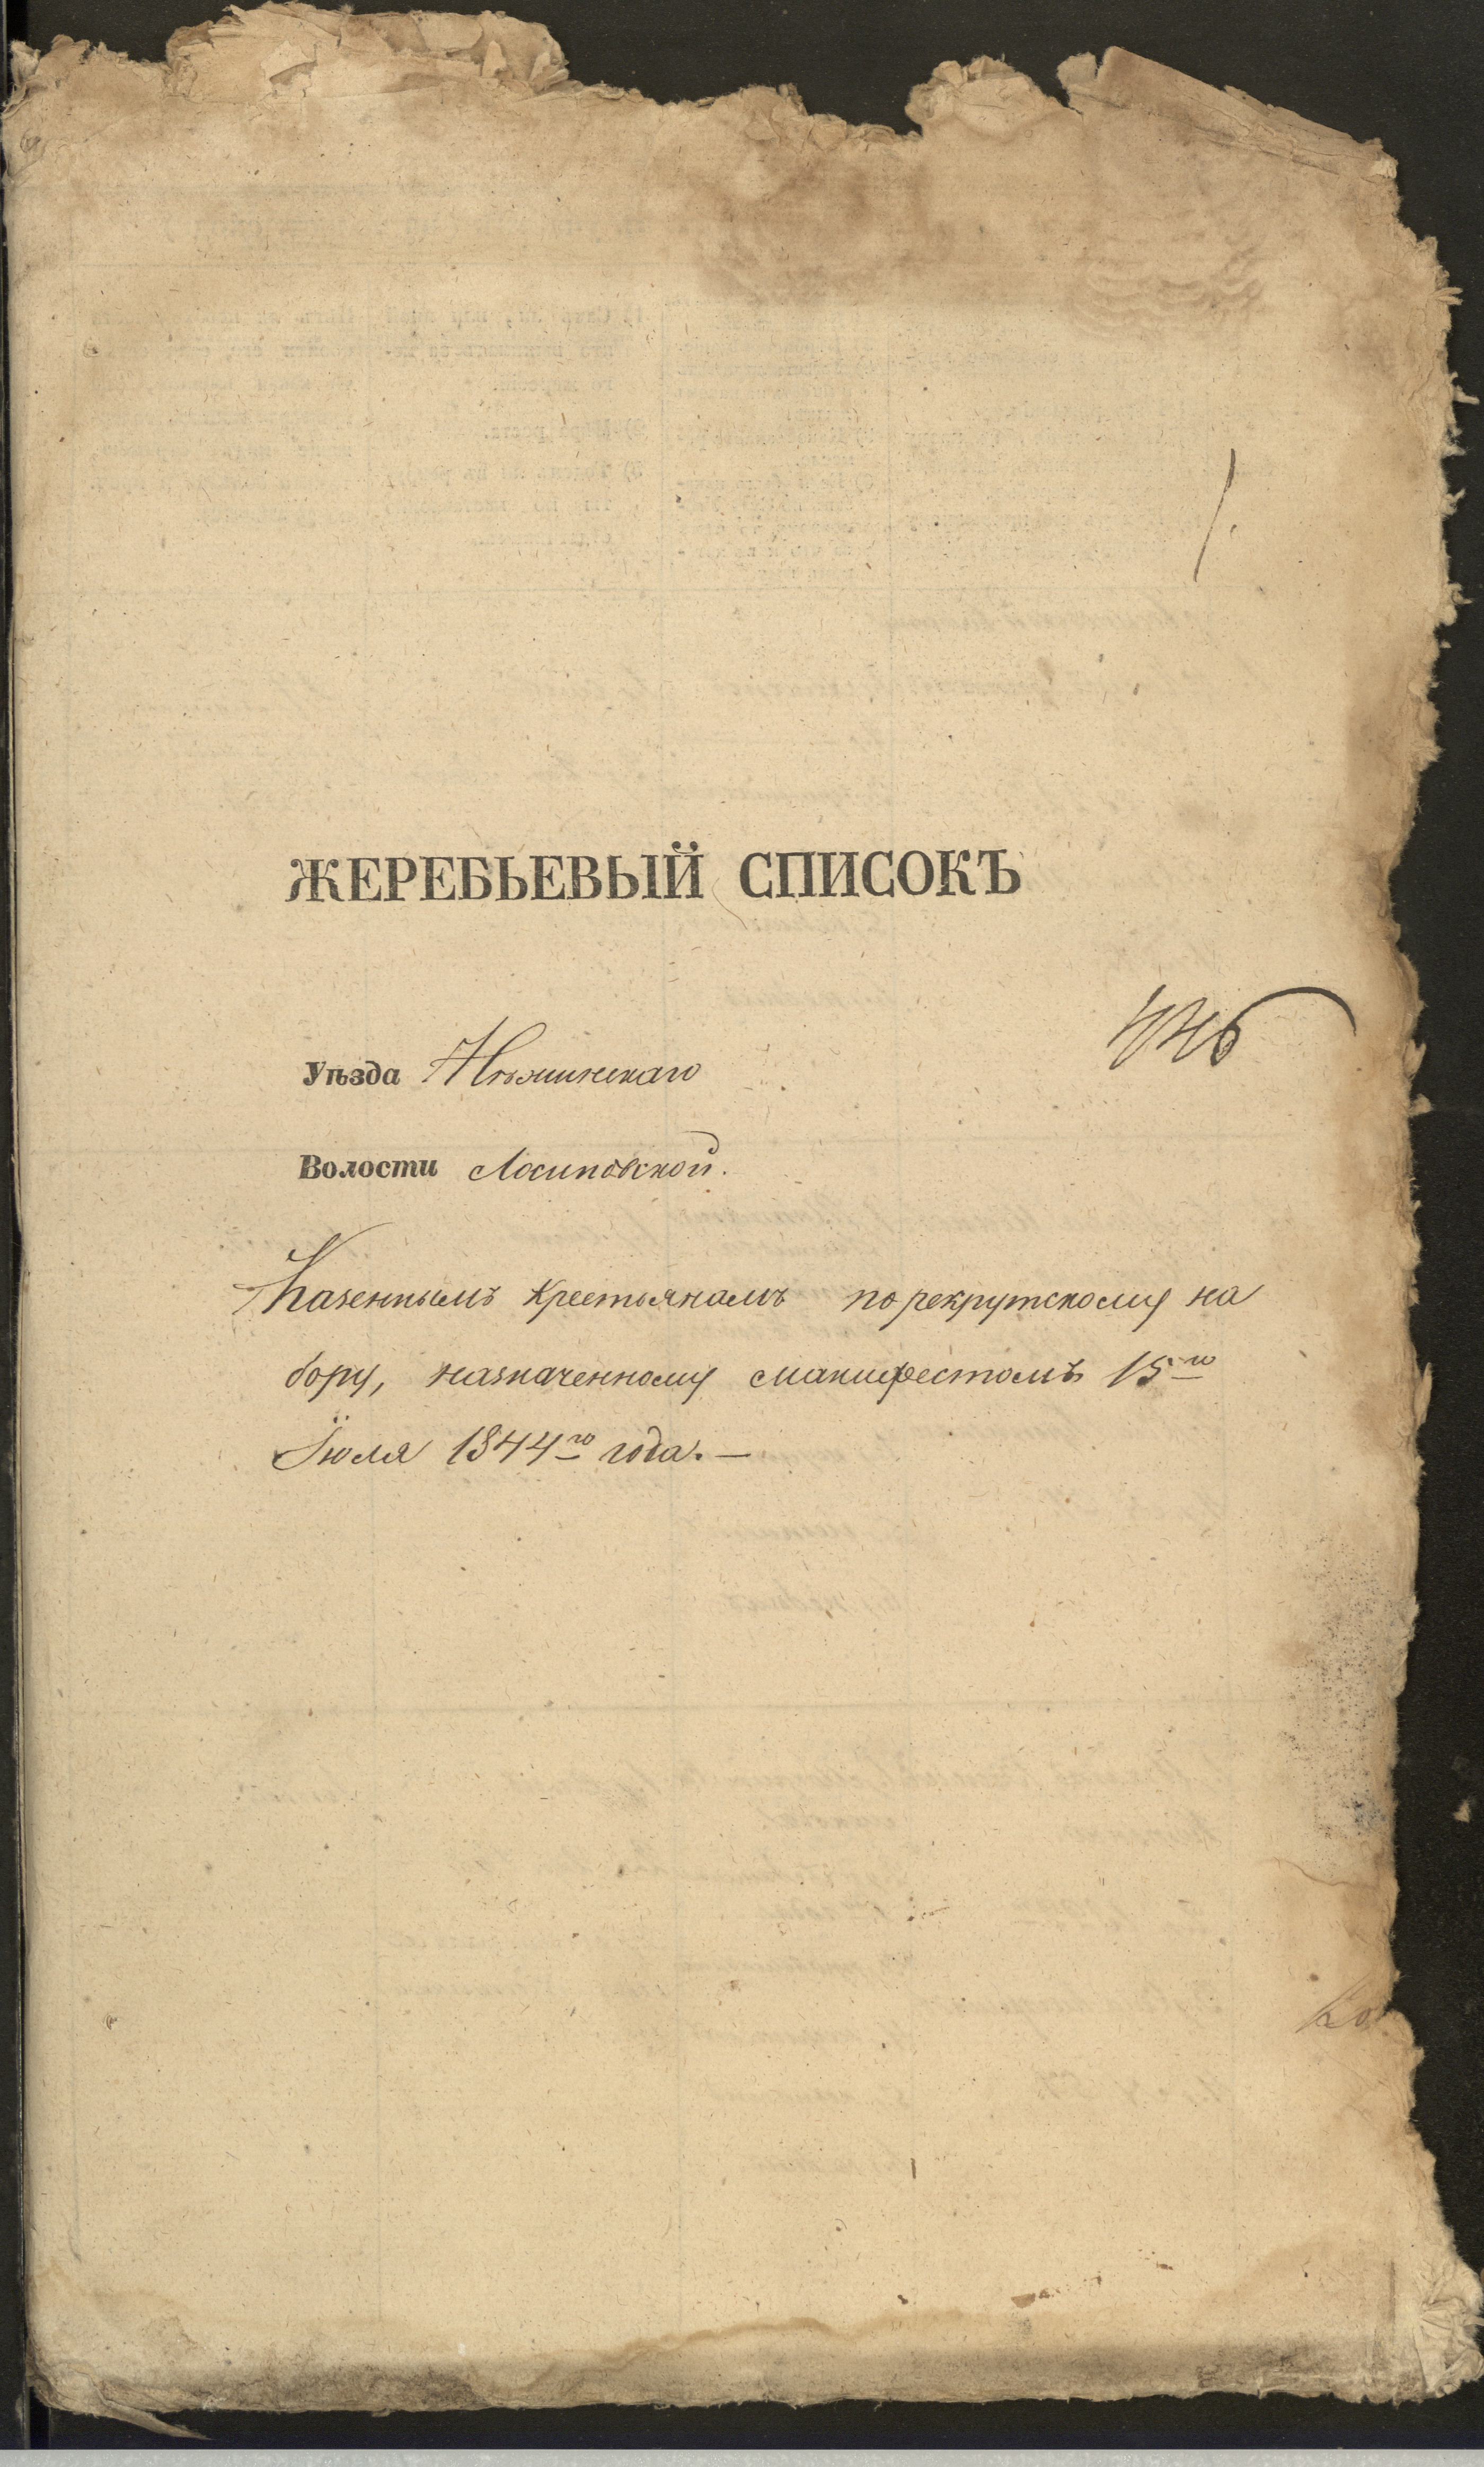 1.
ЖЕРЕБЬЕВЫЙ СПИСОКЪ
Уѣзда Нѣжинскаго
Волости Лосиновской.
Казеннымъ крестьянамъ по рекрутскому на
бору, назначенному манифестомъ 15го
Їюля 1844го года. —